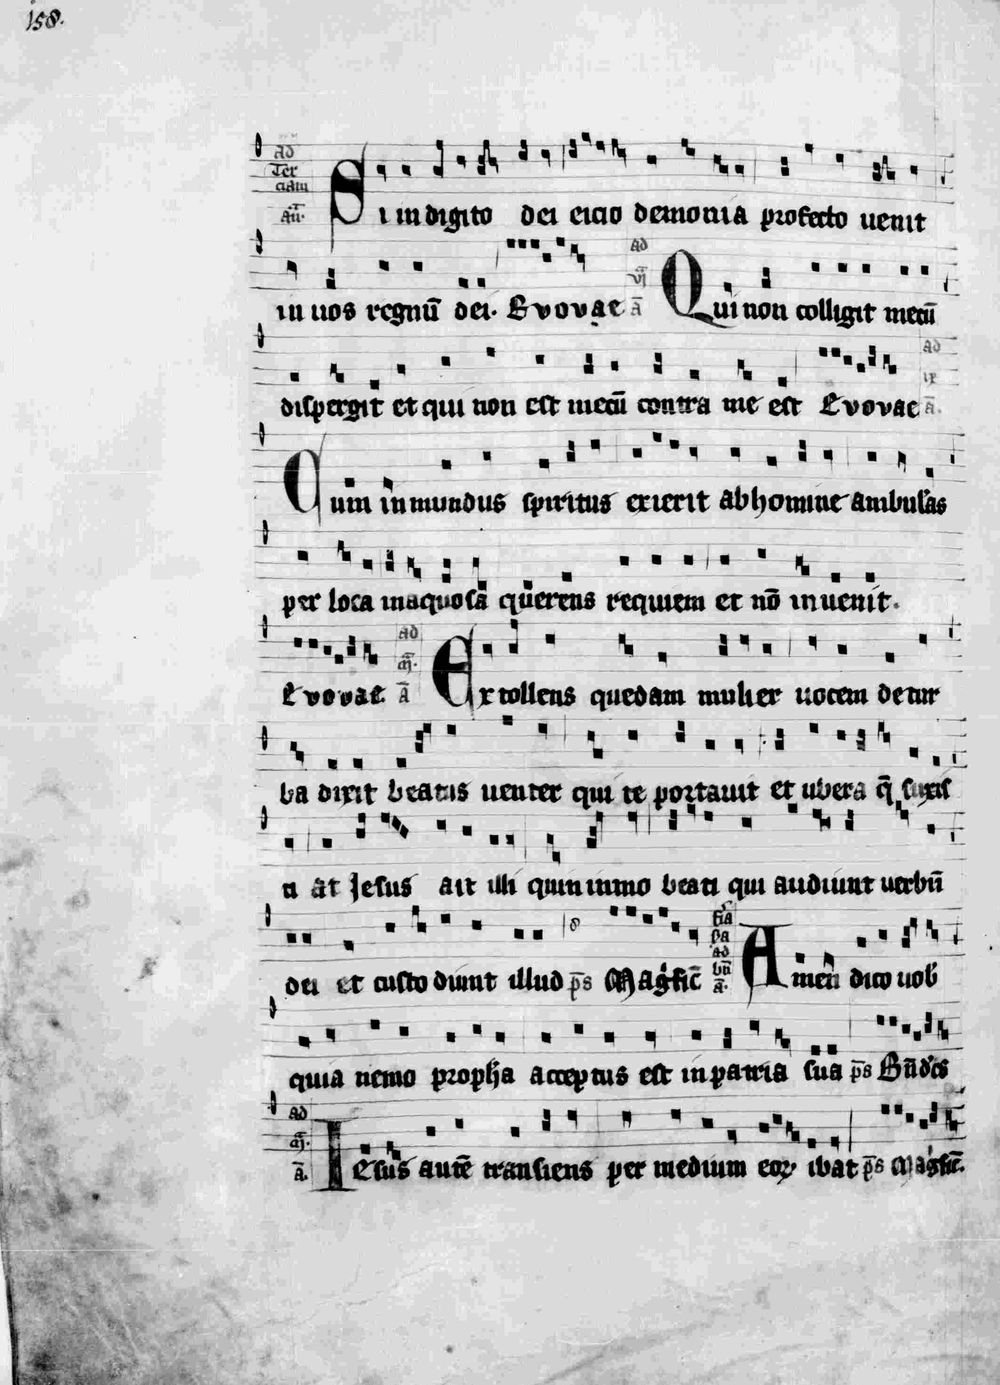 158.
ad
Ter
ciam
añ.
Si in digito dei eicio demonia profecto uenit
in uos regnū dei. Evovae ad vj ā Qui non colligit mecū
dispergit et qui non est mecū contra me est Evovae ad ix ā.
Cum inmundus spiritus exierit ab homine ambulās
per loca inaquosa querens requiem et nō inuenit.
Evovae ad m̄. ā Extollens quedam mulier uocem de tur
ba dixit beatus uenter qui te portauit et ubera q̄ suxis
ti at Jesus ait illi quin inmo beati qui audiunt uerbū
dei et custodiunt illud p̄s Magn̄ficc̄ fīa ad bn̄ ā. Amen dico uob
quia nemo propha acceptus est in patria sua p̄s Bn̄dcs
ad m̄. ā. Iesus autē transiens per medium eoꝝ ibat p̄s Magn̄fic̄.